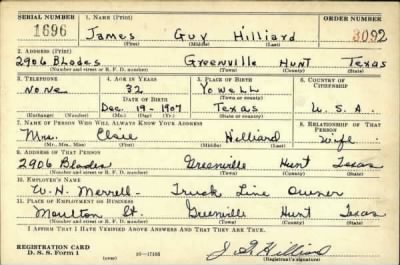 SERIAL NUMBER 1. NAME (Print) ORDER NUMBER
1696 James Guy Hilliard 3092
(First) (Middle) (Last)
2. ADDRESS (Print)
2906 Blodes Greenville Hunt Texas
(Number and street or R. F. D. number) (Town) (County) (State)
3. TELEPHONE 4. AGE IN YEARS 5. PLACE OF BIRTH 6. COUNTRY OF CITIZENSHIP
None 32 Yowell
DATE OF BIRTH (Town or county)
Dec. 19 - 1907 Texas U.S.A.
(Exchange) (Number) (Mo.) (Day) (Yr.) (State or country)
7. NAME OF PERSON WHO WILL ALWAYS KNOW YOUR ADDRESS 8. RELATIONSHIP OF THAT PERSON
Mrs. Hilliard Wife
(Mr., Mrs., Miss) (First) (Middle) (Last)
9. ADDRESS OF THAT PERSON
2906 Blodes Greenville Hunt Texas
(Number and street or R. F. D. number) (Town) (County) (State)
10. EMPLOYER'S NAME
W. N. Merrell - Truck Line Owner
11. PLACE OF EMPLOYMENT OR BUSINESS
Moulton St. Greenville Hunt Texas
(Number and street or R. F. D. number) (Town) (County) (State)
I AFFIRM THAT I HAVE VERIFIED ABOVE ANSWERS AND THAT THEY ARE TRUE.
REGISTRATION CARD
D. S. S. Form 1 J G Hilliard
(Registrant's signature)